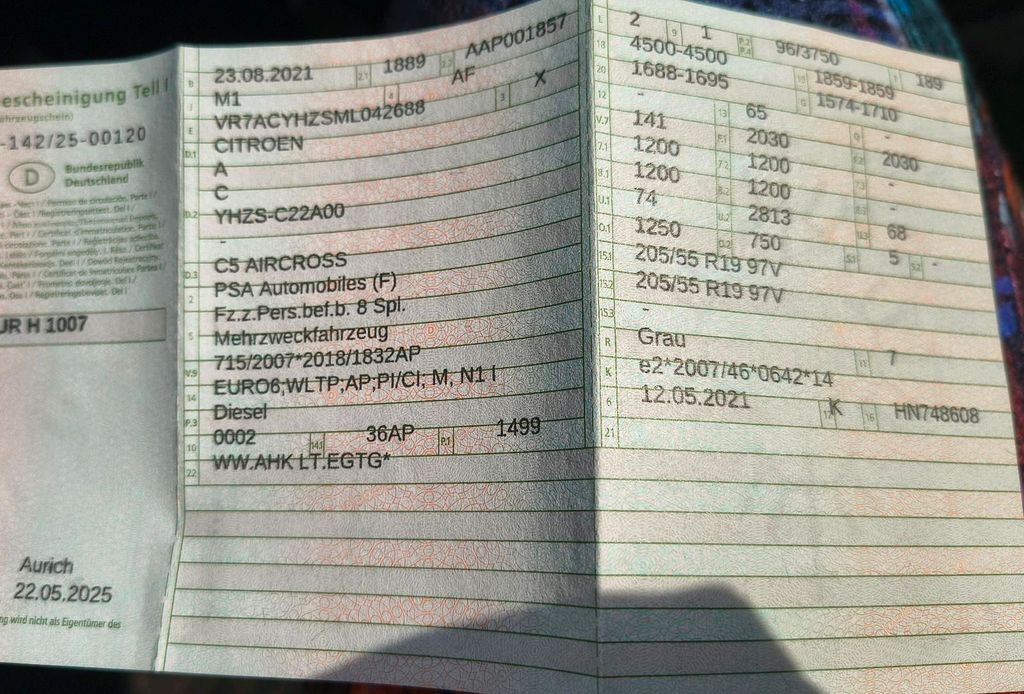 escheinigung Teil I
ahrzeugschein)
-142/25-00120
D
Bundesrepublik
Deutschland
UR H 1007
Aurich
22.05.2025
ng wird nicht als Eigentümer des
B 23.08.2021 2.1 1889 2.2 AAP001857
J M1 4 AF
E VR7ACYHZSML042688 3 X
D.1 CITROEN
A
D.2 C
YHZS-C22A00
-
D.3 C5 AIRCROSS
2 PSA Automobiles (F)
5 Fz.z.Pers.bef.b. 8 Spl.
Mehrzweckfahrzeug
V.9 715/2007*2018/1832AP
14 EURO6;WLTP;AP;PI/CI; M, N1 I
P.3 Diesel
10 0002 14.1 36AP P.1 1499
22 WW.AHK LT.EGTG*
L 2 9 1 P.2 P.4 96/3750 T 189
18 4500-4500 19 1859-1859
20 1688-1695 G 1574-1710
12 - 13 65 Q -
V.7 141 F.1 2030 F.2 2030
7.1 1200 7.2 1200 7.3 -
8.1 1200 8.2 1200 8.3 -
U.1 74 U.2 2813 U.3 68
O.1 1250 O.2 750 S.1 5 S.2 -
15.1 205/55 R19 97V
15.2 205/55 R19 97V
15.3 -
R Grau 11 7
K e2*2007/46*0642*14
6 12.05.2021 17 K 16 HN748608
21